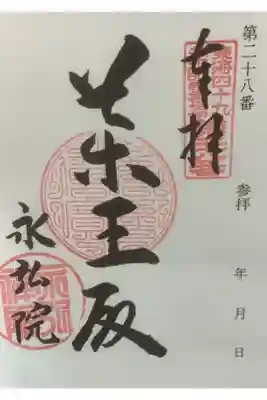 第二十八番
参拝
年 月 日
奉拝
薬王殿
永弘院